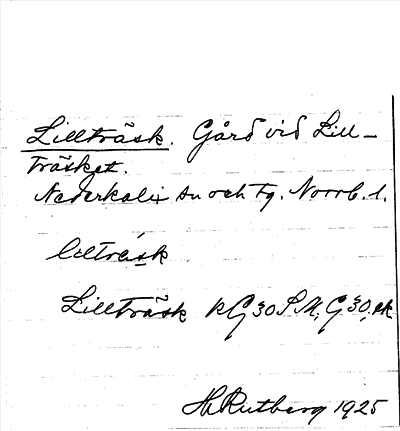 Lillträsk. Gård vid Lill-
träsket.
Nederkalix sn och tg. Norrb. l.
lilträsk
Lillträsk RG30 S.M; G30, ek
H Rutberg 1925